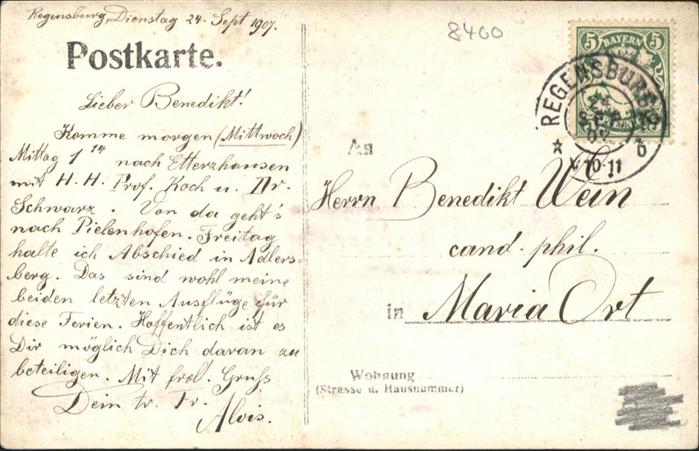 Regensburg, Dienstag 24. Sept 1907.
8400
Postkarte.
Lieber Benedikt!
Komme morgen (Mittwoch)
Mittag 1 14 nach Etterzhausen
mit H. H. Prof. Koch u. Dr.
Schwarz. Von da geht's
nach Pielenhofen. Freitag
halte ich Abschied in Adlers-
berg. Das sind wohl meine
beiden letzten Ausflüge für
diese Ferien. Hoffentlich ist es
Dir möglich Dich daran zu
beteiligen. Mit frdl. Gruss
Dein tr. Fr.
Alois.
5 BAYERN 5
REGENSBURG
24
SEP
07
10-11
An
Herrn Benedikt Wein
cand. phil.
in Maria Ort
Wohnung
(Strasse u. Hausnummer)